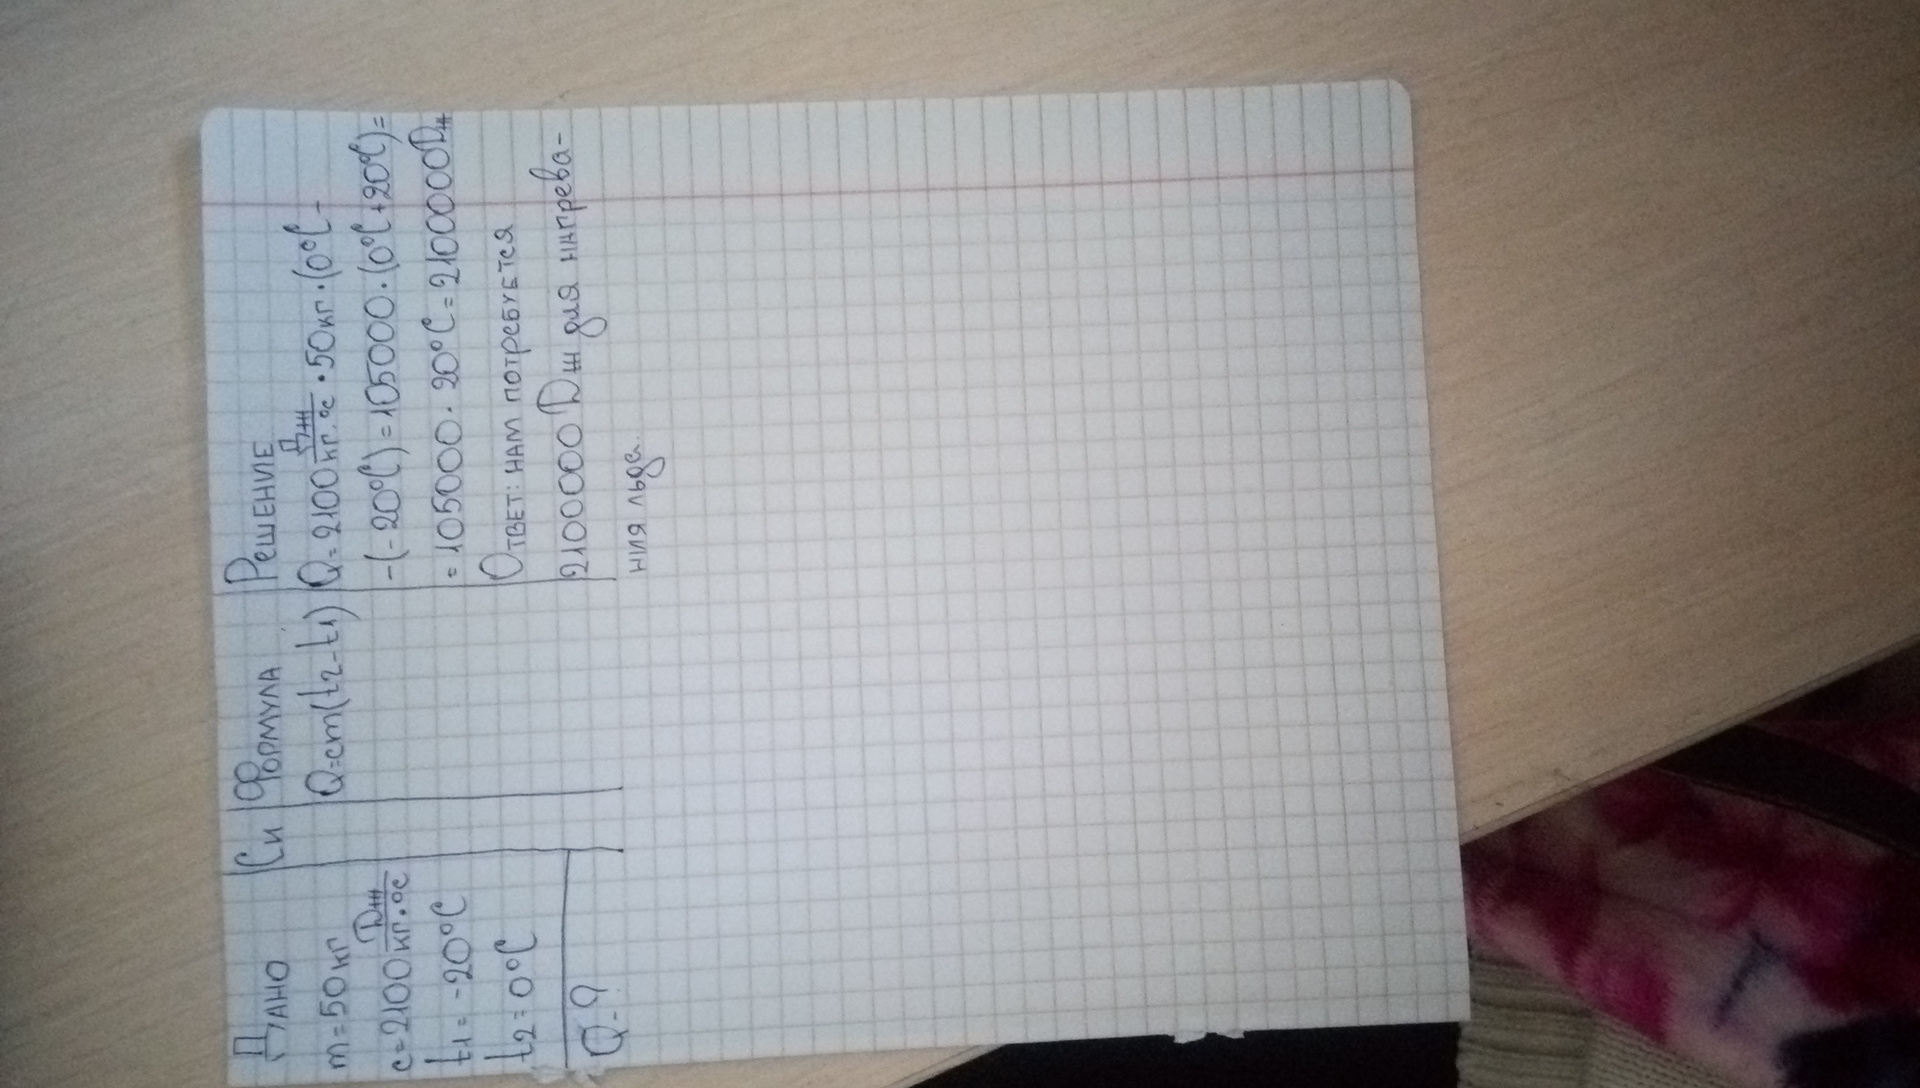 Дано
m=50кг
c=2100 Дж/кг·°C
t1=-20°C
t2=0°C
Q-?
Си
Формула
Q=cm(t2-t1)
Решение
Q=2100 Дж/кг·°C·50кг·(0°C-
-(-20°C)=105000·(0°C+20°C)=
=105000·20°C=2100000Дж
Ответ: нам потребуется
2100000Дж для нагрева-
ния льда.